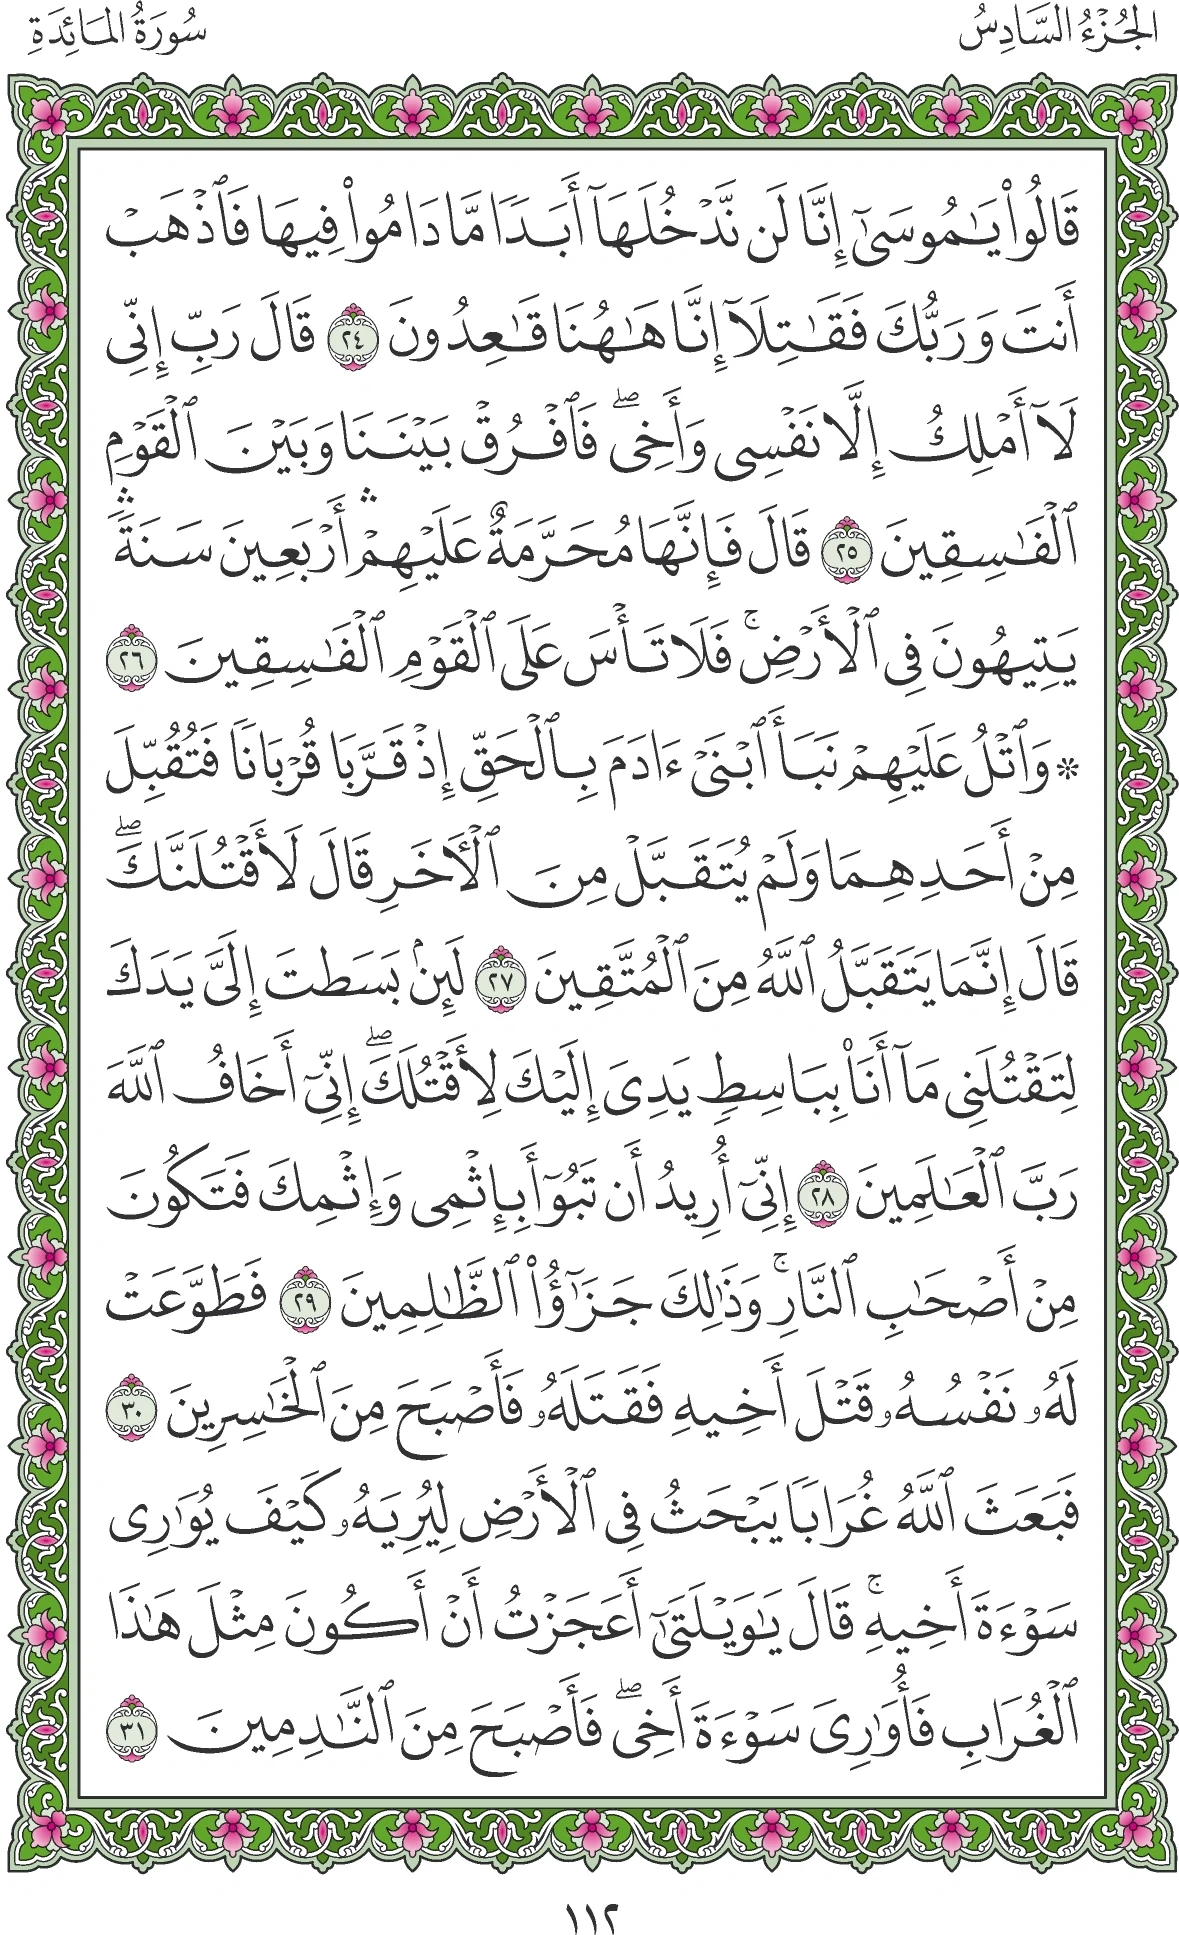 الجُزْءُ السَّادِسُ سُورَةُ المَائِدَةِ
قَالُوا۟ يَـٰمُوسَىٰٓ إِنَّا لَن نَّدْخُلَهَآ أَبَدًا مَّا دَامُوا۟ فِيهَا فَٱذْهَبْ
أَنتَ وَرَبُّكَ فَقَـٰتِلَآ إِنَّا هَـٰهُنَا قَـٰعِدُونَ ٢٤ قَالَ رَبِّ إِنِّى
لَآ أَمْلِكُ إِلَّا نَفْسِى وَأَخِى ۖ فَٱفْرُقْ بَيْنَنَا وَبَيْنَ ٱلْقَوْمِ
ٱلْفَـٰسِقِينَ ٢٥ قَالَ فَإِنَّهَا مُحَرَّمَةٌ عَلَيْهِمْ ۛ أَرْبَعِينَ سَنَةً ۛ
يَتِيهُونَ فِى ٱلْأَرْضِ ۚ فَلَا تَأْسَ عَلَى ٱلْقَوْمِ ٱلْفَـٰسِقِينَ ٢٦
۞ وَٱتْلُ عَلَيْهِمْ نَبَأَ ٱبْنَىْ ءَادَمَ بِٱلْحَقِّ إِذْ قَرَّبَا قُرْبَانًا فَتُقُبِّلَ
مِنْ أَحَدِهِمَا وَلَمْ يُتَقَبَّلْ مِنَ ٱلْـَٔاخَرِ قَالَ لَأَقْتُلَنَّكَ ۖ
قَالَ إِنَّمَا يَتَقَبَّلُ ٱللَّهُ مِنَ ٱلْمُتَّقِينَ ٢٧ لَئِنۢ بَسَطتَ إِلَىَّ يَدَكَ
لِتَقْتُلَنِى مَآ أَنَا۠ بِبَاسِطٍ يَدِىَ إِلَيْكَ لِأَقْتُلَكَ ۖ إِنِّىٓ أَخَافُ ٱللَّهَ
رَبَّ ٱلْعَـٰلَمِينَ ٢٨ إِنِّىٓ أُرِيدُ أَن تَبُوٓأَ بِإِثْمِى وَإِثْمِكَ فَتَكُونَ
مِنْ أَصْحَـٰبِ ٱلنَّارِ ۚ وَذَٰلِكَ جَزَٰٓؤُا۟ ٱلظَّـٰلِمِينَ ٢٩ فَطَوَّعَتْ
لَهُۥ نَفْسُهُۥ قَتْلَ أَخِيهِ فَقَتَلَهُۥ فَأَصْبَحَ مِنَ ٱلْخَـٰسِرِينَ ٣٠
فَبَعَثَ ٱللَّهُ غُرَابًا يَبْحَثُ فِى ٱلْأَرْضِ لِيُرِيَهُۥ كَيْفَ يُوَٰرِى
سَوْءَةَ أَخِيهِ ۚ قَالَ يَـٰوَيْلَتَىٰٓ أَعَجَزْتُ أَنْ أَكُونَ مِثْلَ هَـٰذَا
ٱلْغُرَابِ فَأُوَٰرِىَ سَوْءَةَ أَخِى ۖ فَأَصْبَحَ مِنَ ٱلنَّـٰدِمِينَ ٣١
١١٢